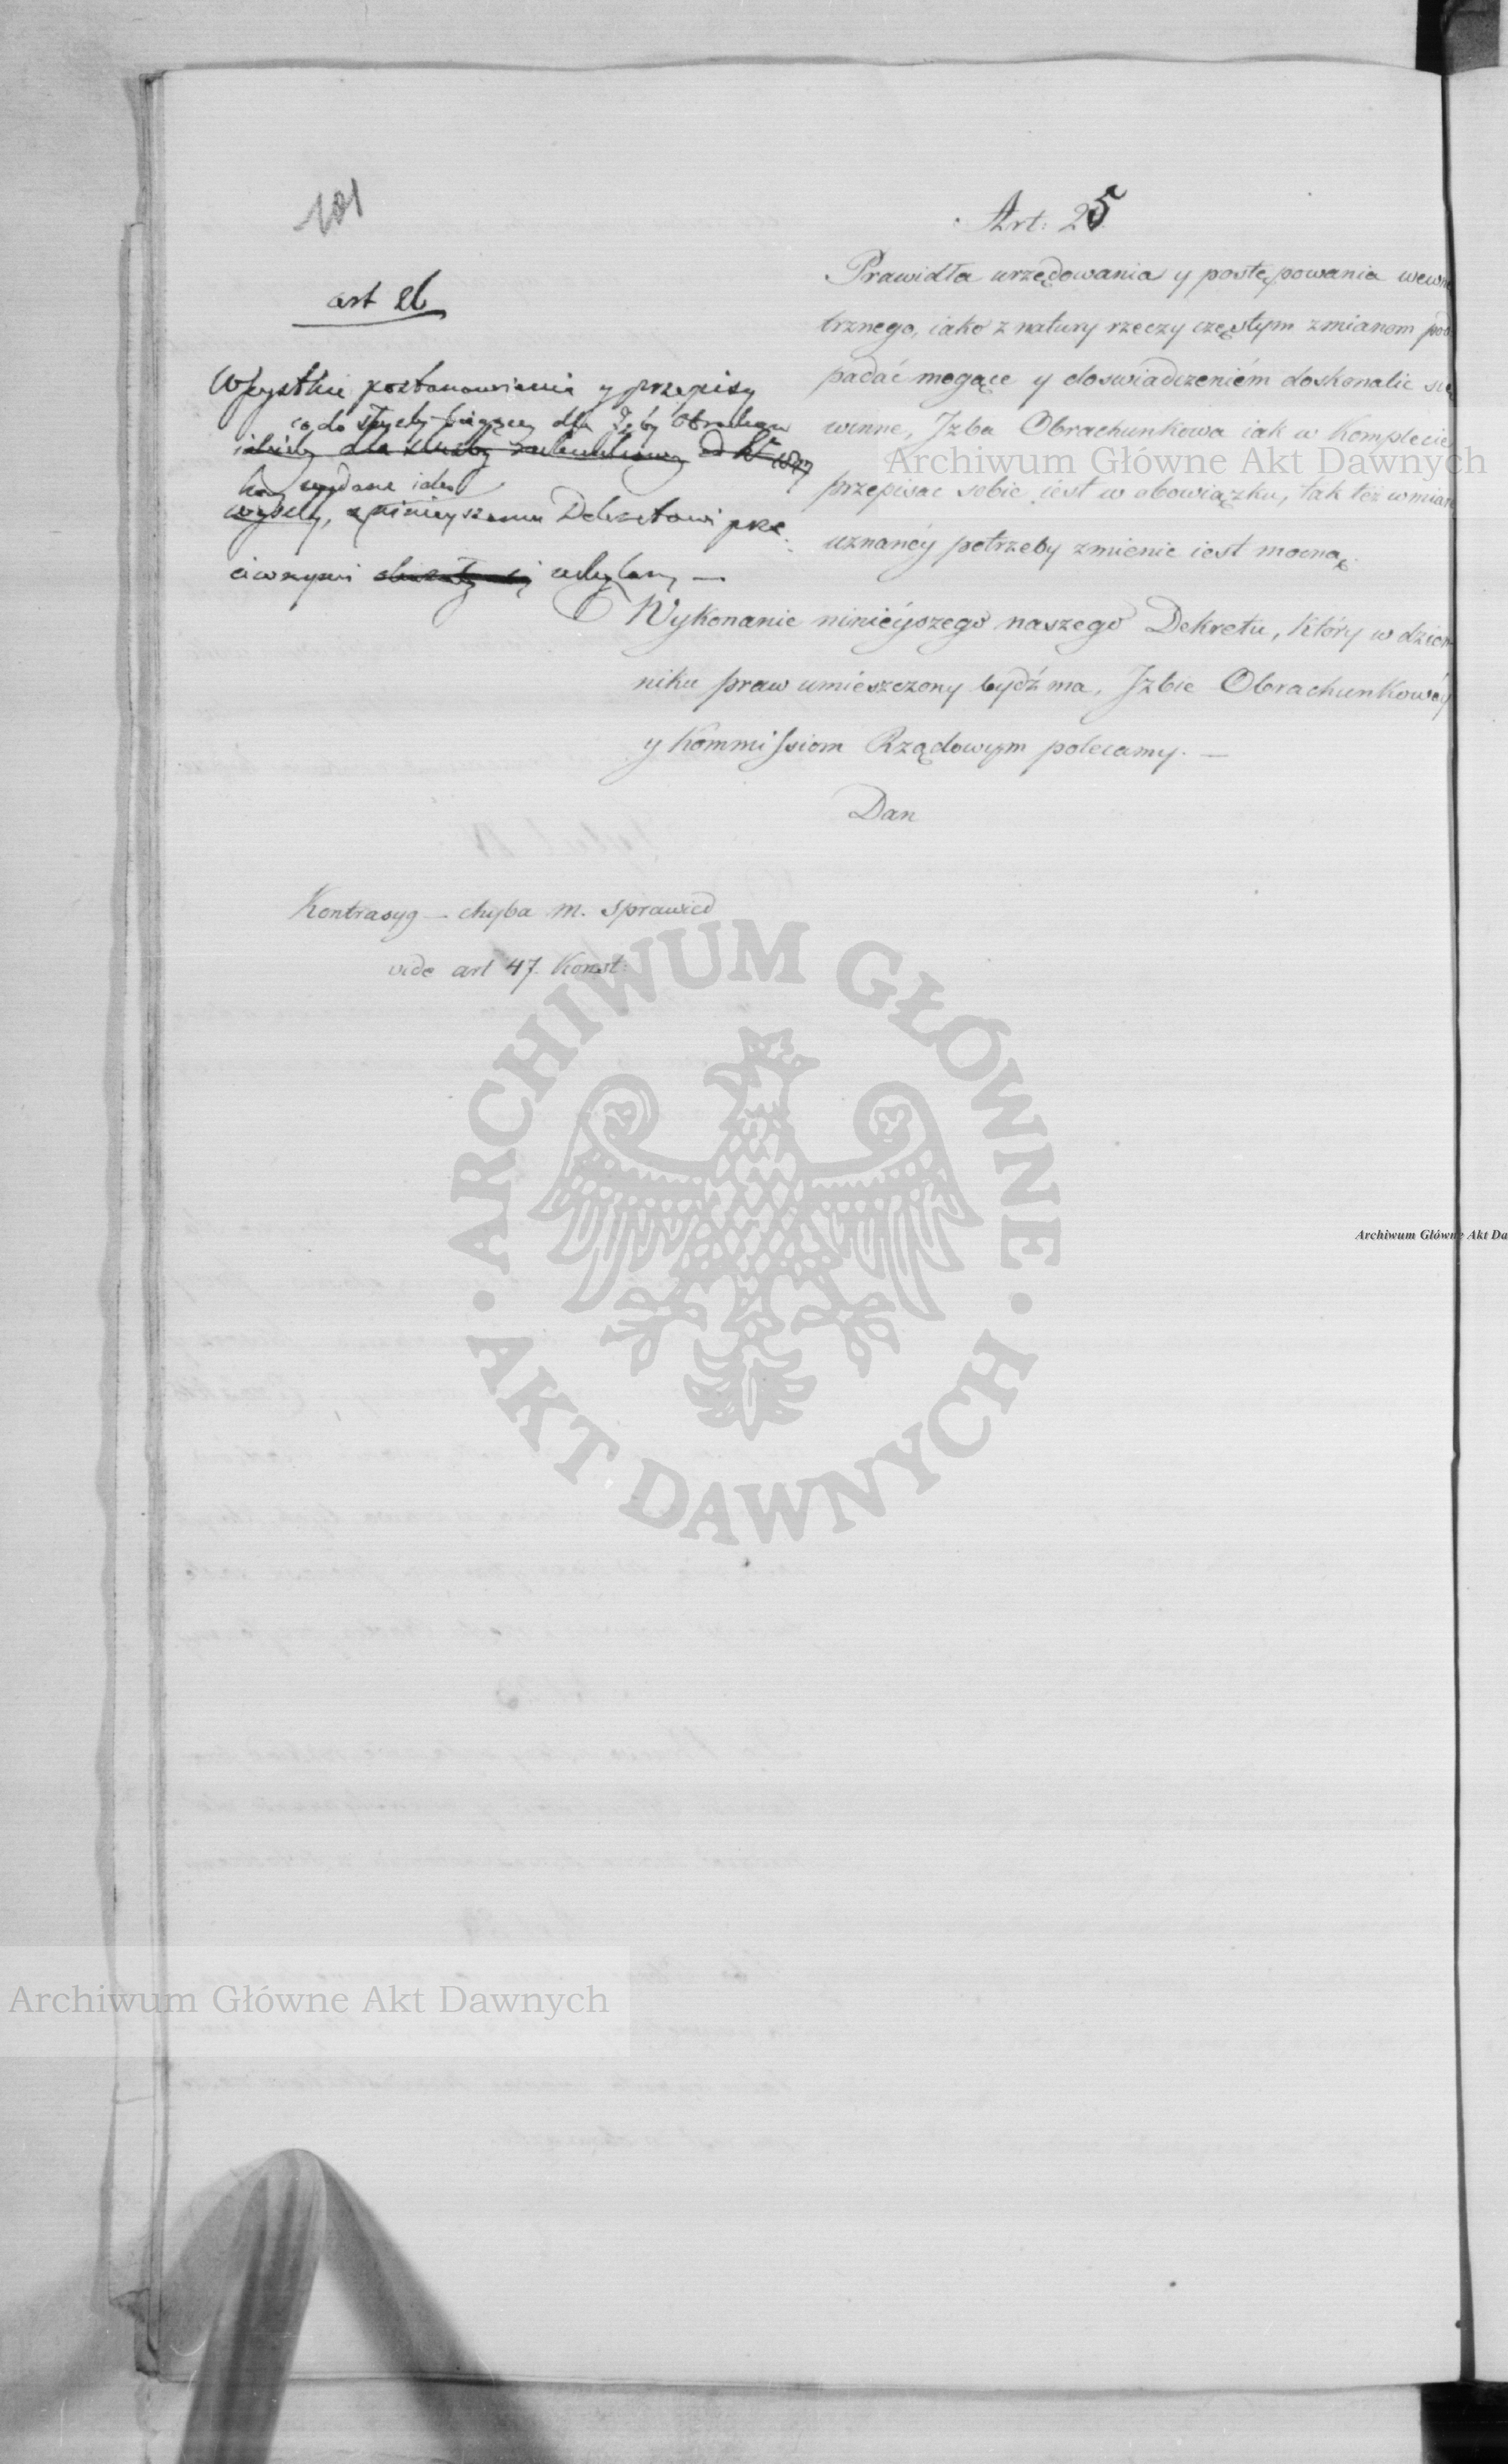 101
Art: 25
Prawidła urzędowania y postępowania wewnę
trznego, iako z natury rzeczy częstym zmianom pod
padać mogące y doswiadczeniem doskonalic się
winne, Jzba Obrachunkowa iak w Komplecie
przepisac sobie iest w obowiązku, tak też w miarę
uznanéy potrzeby zmienic iest mocna
art 26
Wszystkie postanowienia y przepisy
co do służby dla Izby Obrachun
kow wydane iako
niniejszemu Dekretowi prze
ciwnymi uchylamy —
Wykonanie niniéyszego naszego Dekretu, Który w dzien
niku praw umieszczony bydź ma, Jzbie Obrachunkowéy
y Kommissiom Rządowym polecamy. —
Dan
Kontrasyg — chyba m. sprawied
vide art 47. Konst:
Archiwum Główne Akt Dawnych
ARCHIWUM GŁÓWNE AKT DAWNYCH
Archiwum Główne Akt Da
Archiwum Główne Akt Dawnych